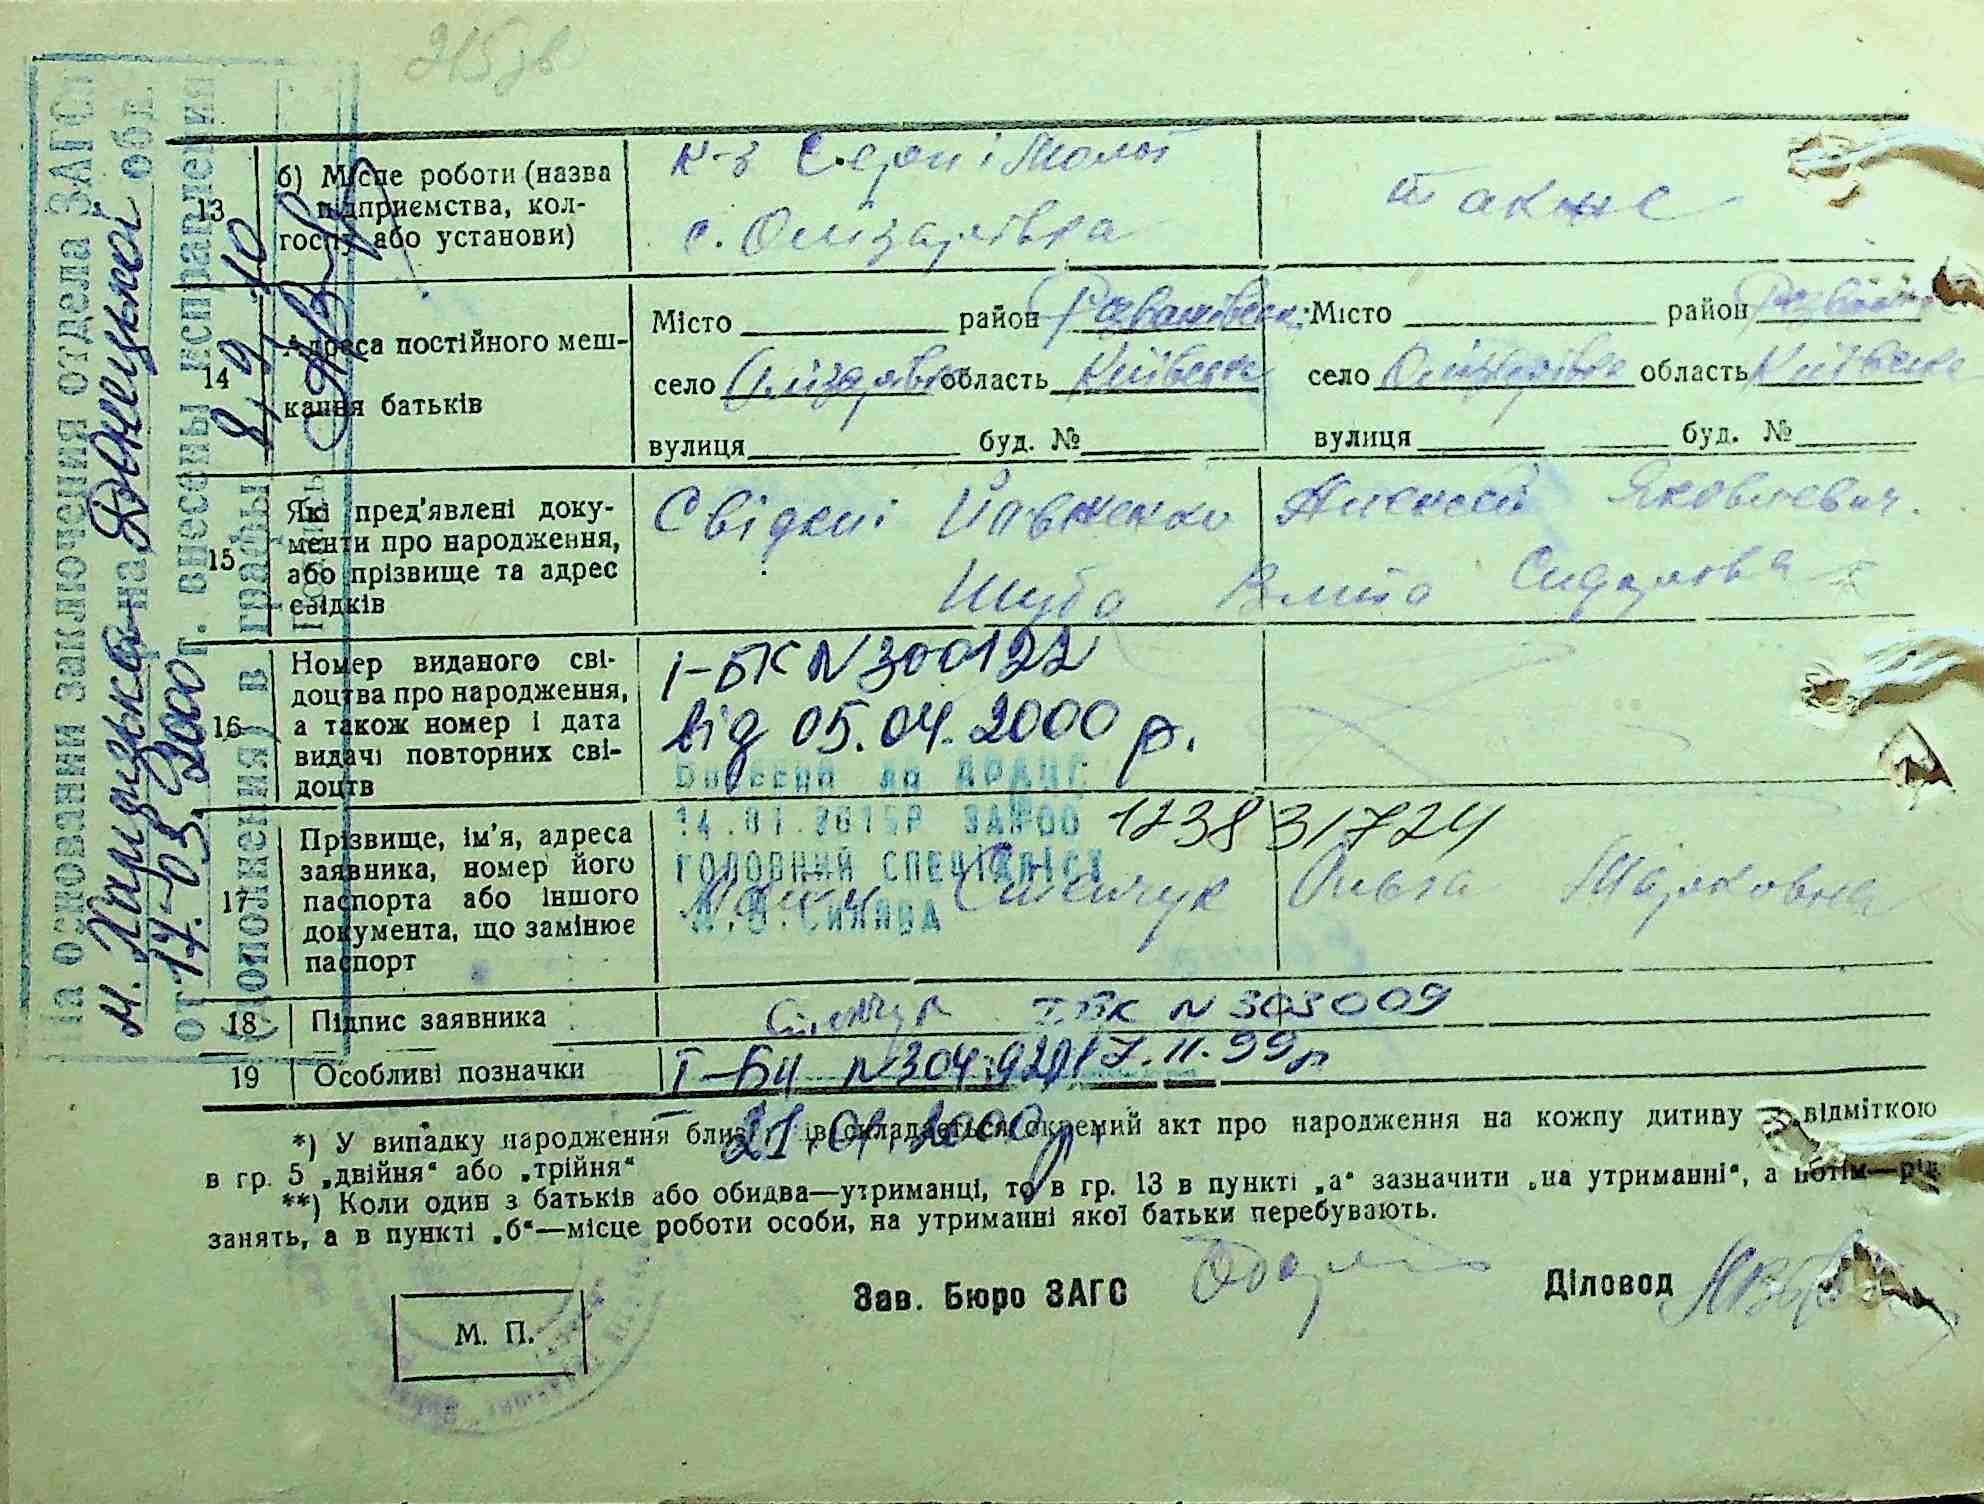 215 зв
13
б) Місце роботи (назва
підприємства, кол-
госпу або установи)
к-з Серп і Молот
с. Олізарівка
також
14
Адреса постійного меш-
кання батьків
Місто район Розважівськ.
село Олізарівка область Київська
вулиця буд. №
Місто район
село Олізарівка область Київська
вулиця буд. №
15
Які пред'явлені доку-
менти про народження,
або прізвище та адрес
свідків
Свідкі Йовженко Алексей Яковлевич.
Шуба Сидорова
16
Номер виданого сві-
доцтва про народження,
а також номер і дата
видачі повторних сві-
доцтв
І-БК N 300122
від 05.04.2000 р.
Внесений до ДРАЦС
14.01.2015Р ЗА№00 1238 31724
ГОЛОВНИЙ СПЕЦІАЛІСТ
17
Прізвище, ім'я, адреса
заявника, номер його
паспорта або іншого
документа, що замінює
паспорт
Ольга Марковна
18
Підпис заявника
І-БК N 303009
19
Особливі позначки
І-БК N 304921 17.11.99р
21.01.2000р.
*) У випадку народження близнюків складається окремий акт про народження на кожну дитину з відміткою
в гр. 5 „двійня“ або „трійня“
**) Коли один з батьків або обидва—утриманці, то в гр. 13 в пункті „а“ зазначити „на утриманні“, а потім—рід
занять, а в пункті „б“—місце роботи особи, на утриманні якої батьки перебувають.
Зав. Бюро ЗАГС
Діловод
М. П.
На основании заключения отдела ЗАГСа
м. Харцизька на Донецької обл.
от 17-03. 2000 г. внесены исправления
(дополнения) в графы 8, 9, 10